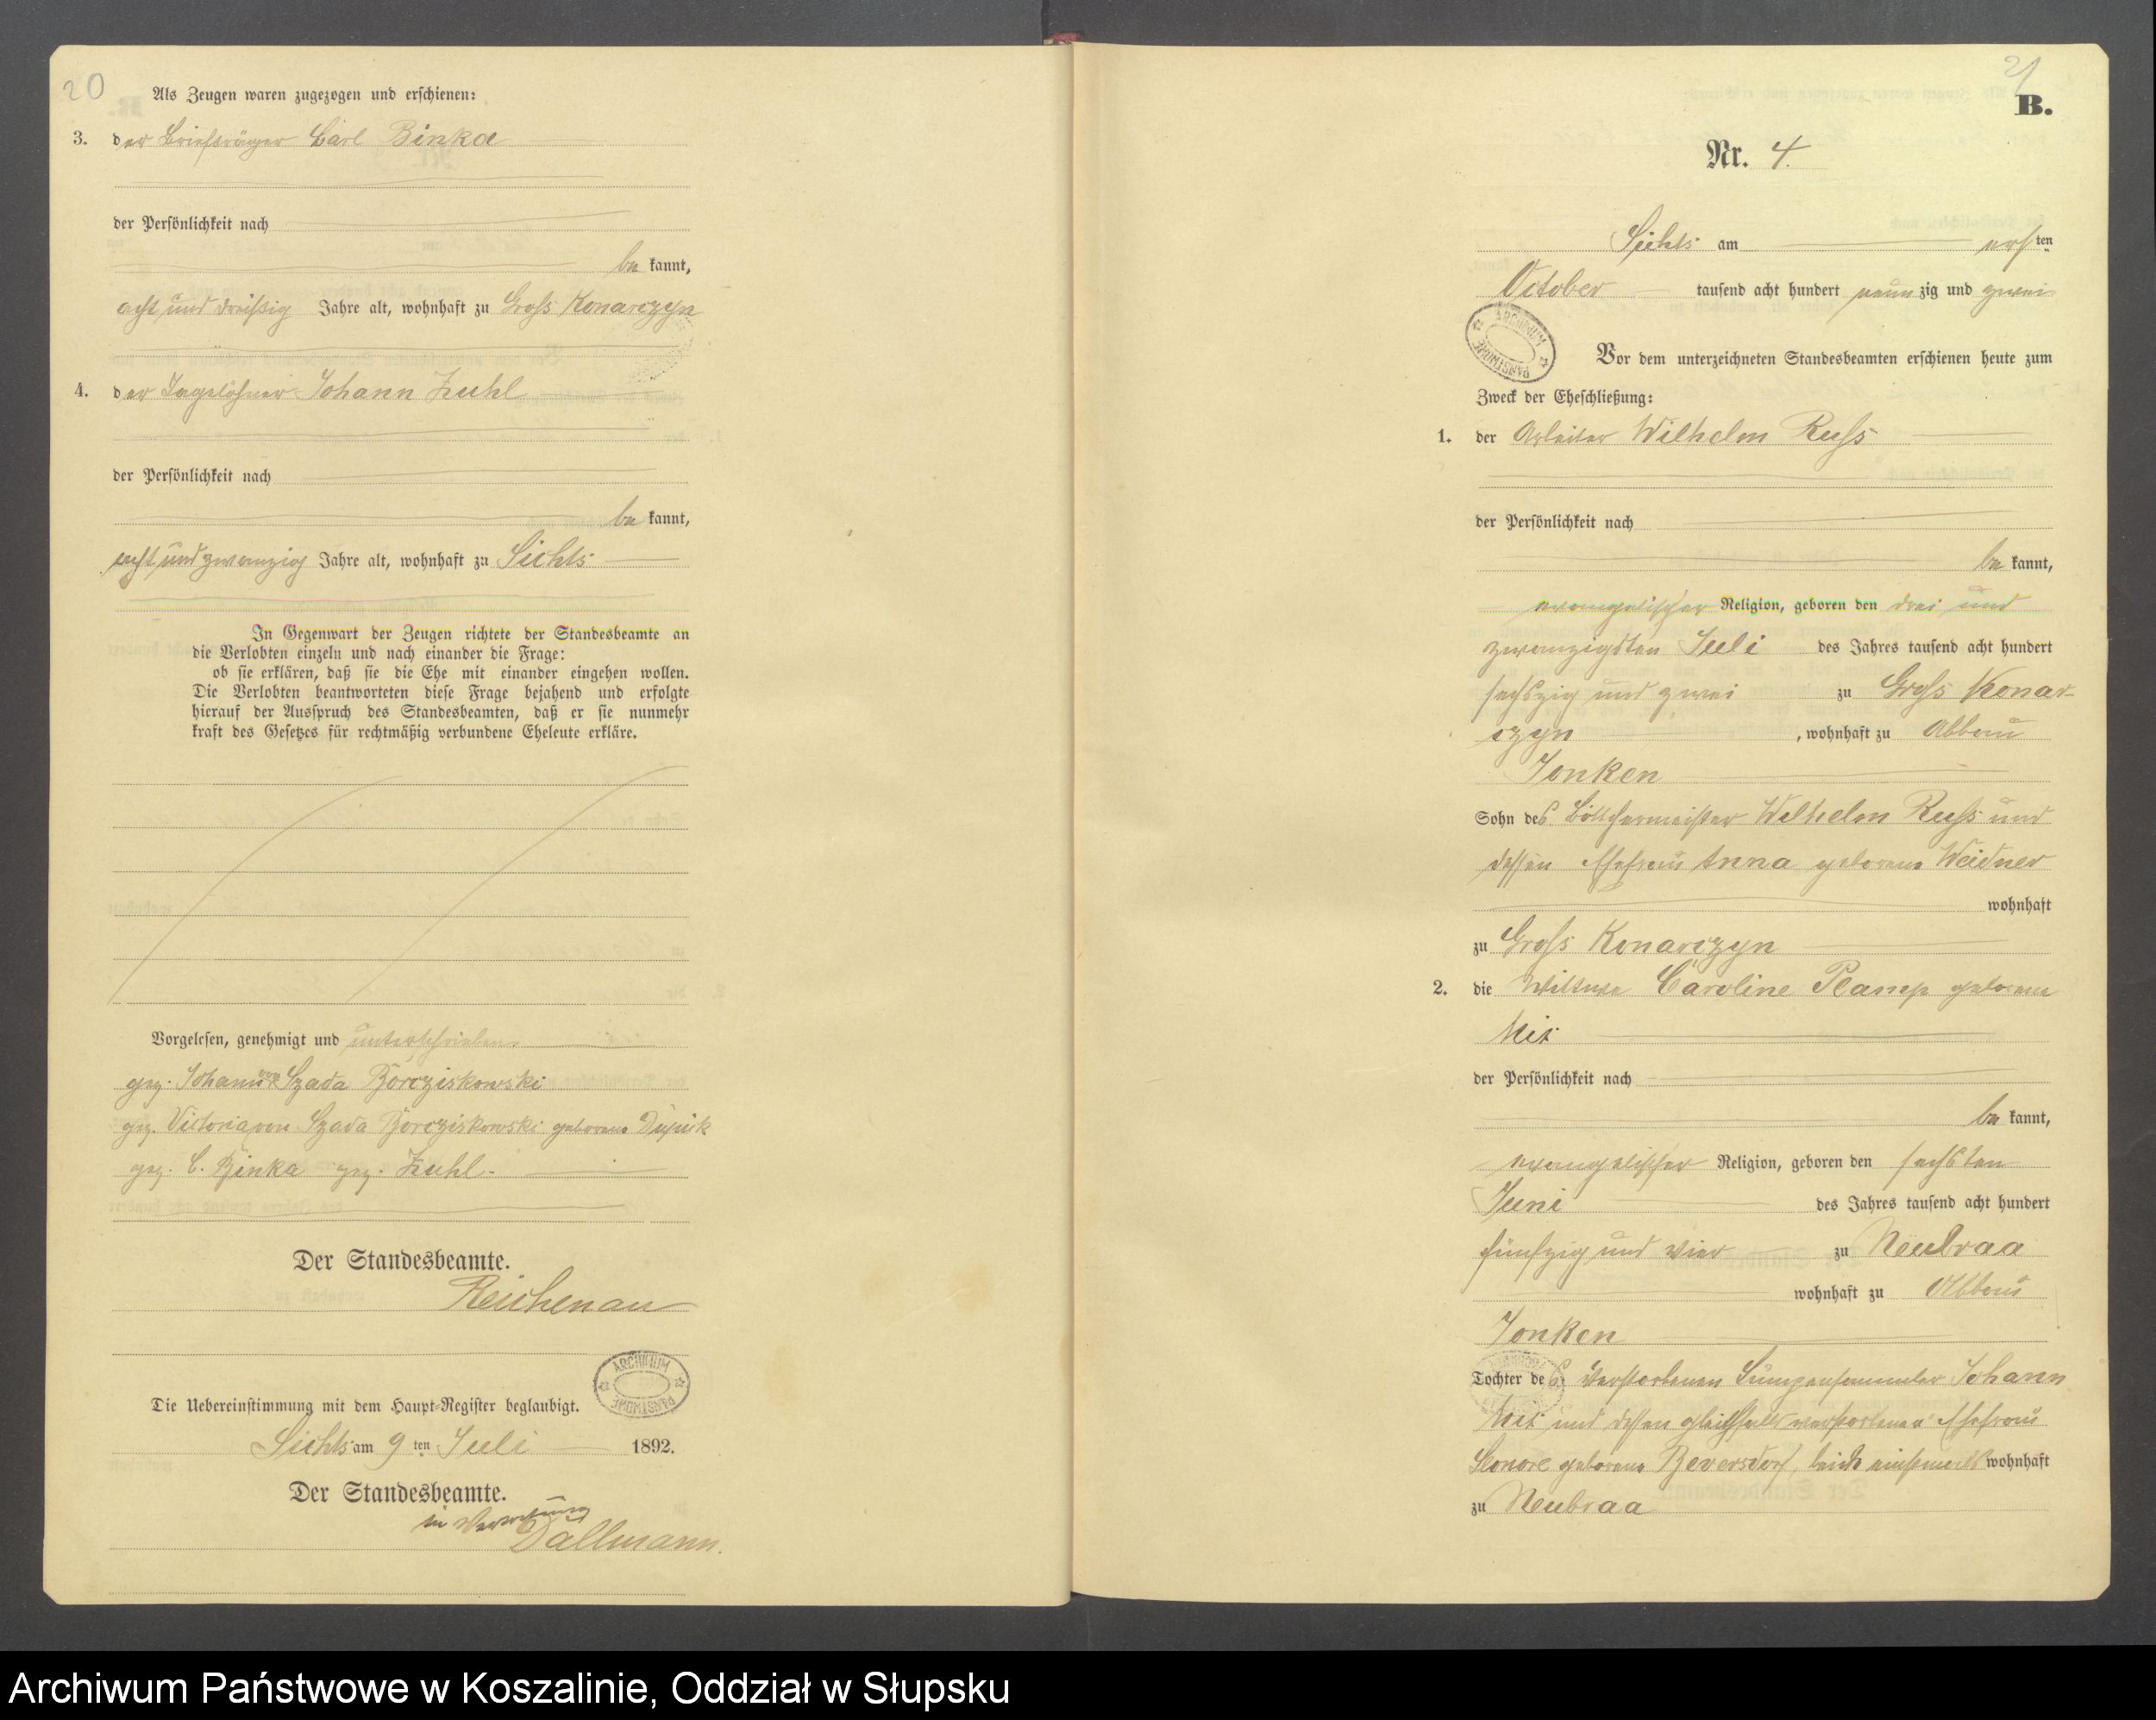 20
Als Zeugen waren zugezogen und erschienen:
3. der Briefträger Carl Binka
der Persönlichkeit nach
be kannt,
acht und dreißig Jahre alt, wohnhaft zu Gross Konarczyn
4. der Tagelöhner Johann Zuhl
der Persönlichkeit nach
be kannt,
acht und zwanzig Jahre alt, wohnhaft zu Sichts
In Gegenwart der Zeugen richtete der Standesbeamte an
die Verlobten einzeln und nach einander die Frage:
ob sie erklären, daß sie die Ehe mit einander eingehen wollen.
Die Verlobten beantworteten diese Frage bejahend und erfolgte
hierauf der Ausspruch des Standesbeamten, daß er sie nunmehr
kraft des Gesetzes für rechtmäßig verbundene Eheleute erkläre.
Vorgelesen, genehmigt und unterschrieben
gez. Johann von Szada Borcziskowski
gez. Victoria von Szada Borcziskowski geborene
gez. C. Binka gez. Zuhl.
Der Standesbeamte.
Reichenau
ARCHIWUM PAŃSTWOWE
Die Uebereinstimmung mit dem Haupt-Register beglaubigt.
Sichts am 9 ten Juli 1892.
Der Standesbeamte.
in Vertretung
Dallmann.
21
B.
Nr. 4.
Sichts am ersten
October tausend acht hundert neunzig und zwei
ARCHIWUM PAŃSTWOWE
Vor dem unterzeichneten Standesbeamten erschienen heute zum
Zweck der Eheschließung:
1. der Arbeiter Wilhelm Russ
der Persönlichkeit nach
be kannt,
evangelischer Religion, geboren den drei und
zwanzigsten Juli des Jahres tausend acht hundert
sechszig und zwei zu Gross Konar-
czyn, wohnhaft zu Abbau
Jonken
Sohn des Böttchermeister Wilhelm Russ und
dessen Ehefrau Anna geborene Weidner
wohnhaft
zu Gross Konarczyn
2. die Wittwe Caroline Plamp geborene
der Persönlichkeit nach
be kannt,
evangelischer Religion, geboren den sechsten
Juni des Jahres tausend acht hundert
fünfzig und vier zu Neubraa
wohnhaft zu Abbau
Jonken
Tochter des verstorbenen Lumpensammler Johann
und dessen gleichfalls verstorbenen Ehefrau
Leonore geborene Beversdorf, beide wohnhaft
zu Neubraa
Archiwum Państwowe w Koszalinie, Oddział w Słupsku